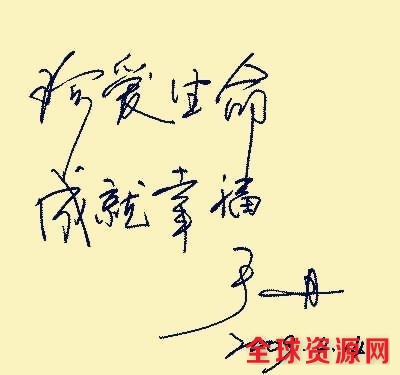 珍爱生命
成就幸福
于丹
全球资源网